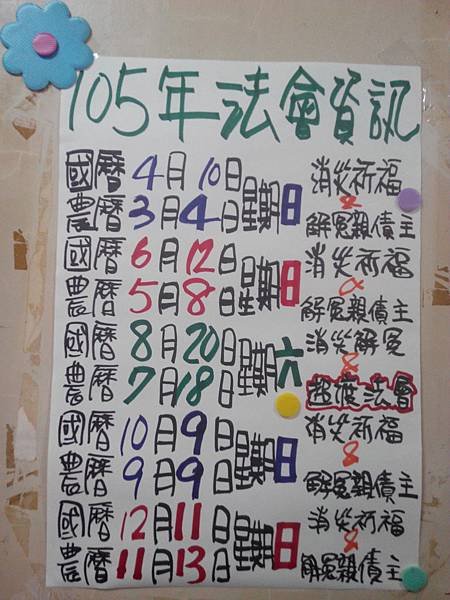 105年法會資訊
國曆4月10日星期日 消災祈福
&
農曆3月4日 解冤親債主
國曆6月12日星期日 消災祈福
&
農曆5月8日 解冤親債主
國曆8月20日星期六 消災解冤
&
農曆7月18日 超渡法會
國曆10月9日星期日 消災祈福
&
農曆9月9日 解冤親債主
國曆12月11日星期日 消災祈福
&
農曆11月13日 解冤親債主